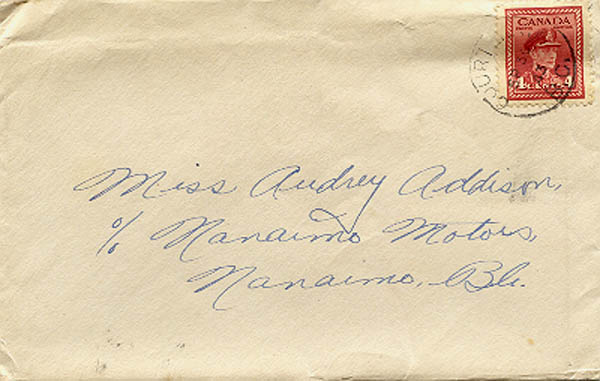 CANADA
4 4
COURT
43
Miss Audrey Addison,
% Nanaimo Motors,
Nanaimo, B.C.